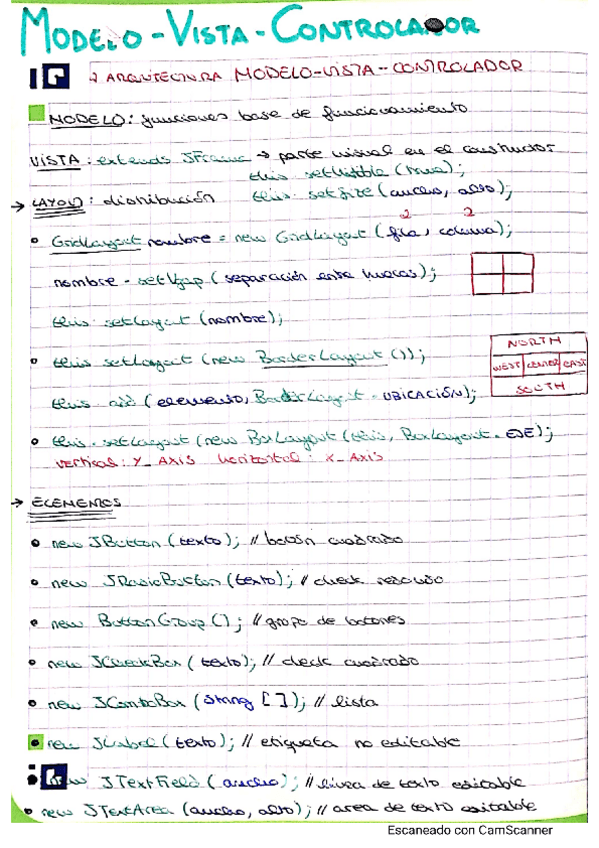 MODELO-VISTA-CONTROLADOR
ARQUITECTURA MODELO-VISTA-CONTROLADOR
MODELO: funciones base de funcionamiento
VISTA: extends JFrame → parte visual en el constructor
this.setVisible(true);
→ LAYOUT: distribución this.setSize(ancho, alto);
2 2
• GridLayout nombre = new GridLayout (fila, columna);
nombre.setVgap (separación entre huecos);
this.setLayout (nombre);
NORTH
• this.setLayout (new BorderLayout ());
WEST CENTER EAST
SOUTH
this.add (elemento, BorderLayout.UBICACIÓN);
• this.setLayout (new BoxLayout (this, BoxLayout.EJE);
vertical: Y_AXIS horizontal: X_AXIS
→ ELEMENTOS
• new JButton (texto); // botón cuadrado
• new JRadioButton (texto); // check redondo
• new ButtonGroup (); // grupo de botones
• new JCheckBox (texto); // check cuadrado
• new JComboBox (String []); // lista
new JLabel (texto); // etiqueta no editable
JTextField (ancho); // línea de texto editable
• new JTextArea (ancho, alto); // area de texto editable
Escaneado con CamScanner